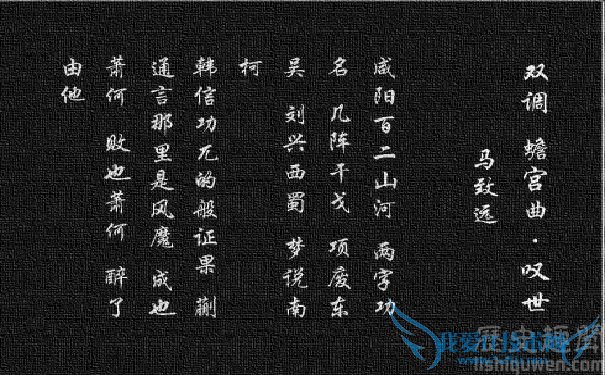 双调 蟾宫曲·叹世
马致远
咸阳百二山河 两字功
名 几阵干戈 项废东
吴 刘兴西蜀 梦说南
柯
韩信功兀的般证果 蒯
通言那里是风魔 成也
萧何 败也萧何 醉了
由他
lishiquwen.com